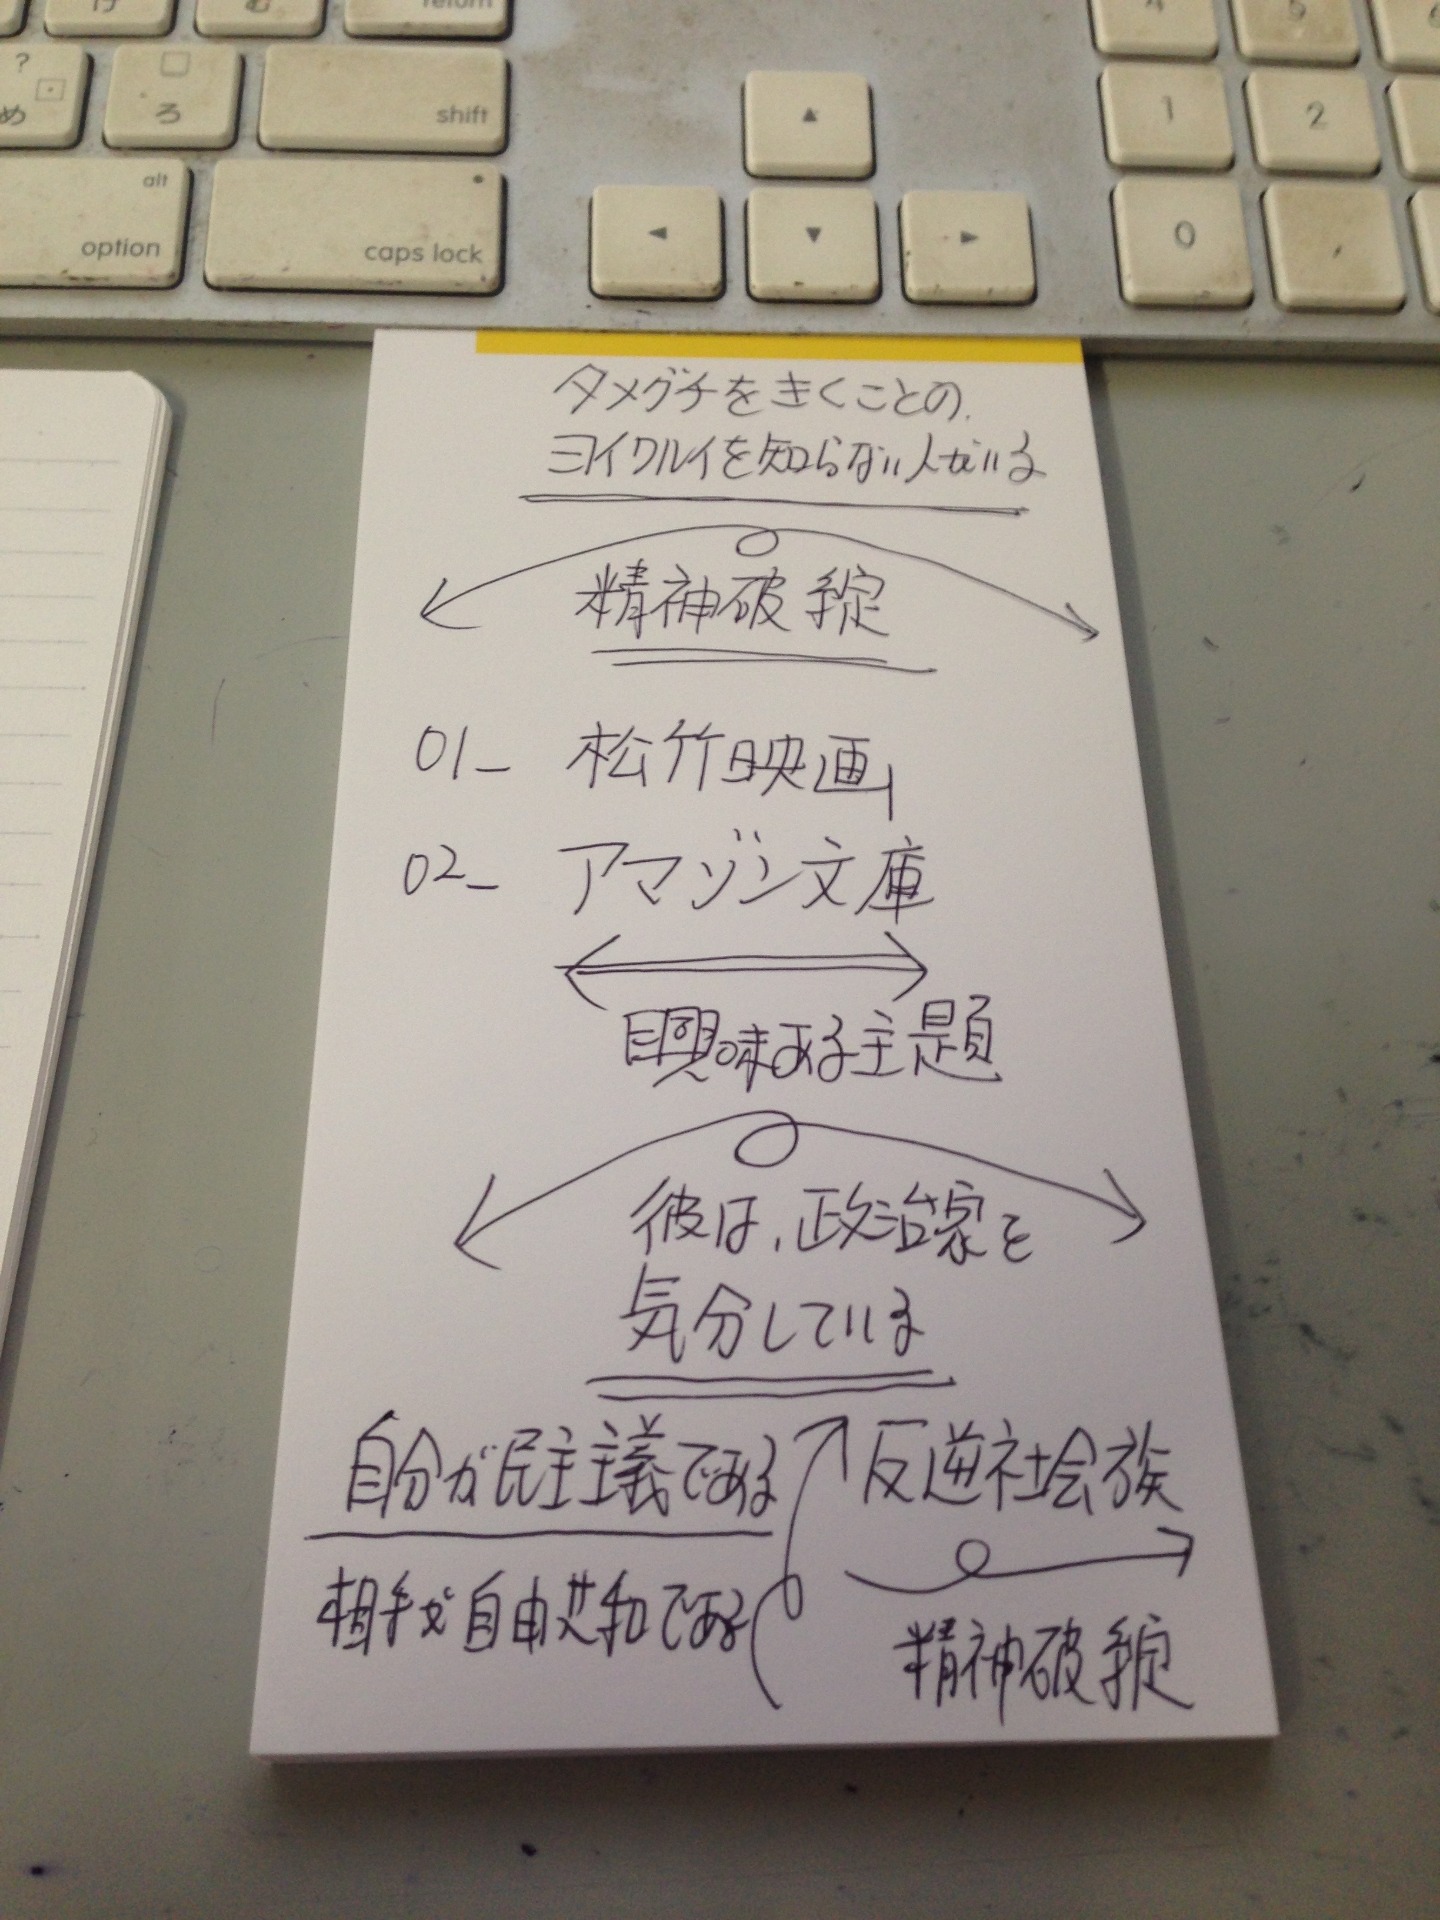 け
む
return
?
め
ろ
shift
4
5
6
1
2
alt
option
caps lock
0
タメグチをきくことの、
ヨイワルイを知らない人がいる
精神破綻
01_ 松竹映画
02_ アマゾン文庫
興味ある主題
彼は、政治家を
気分している
自分が民主主義である
反逆社会族
相手が自由共和である
精神破綻